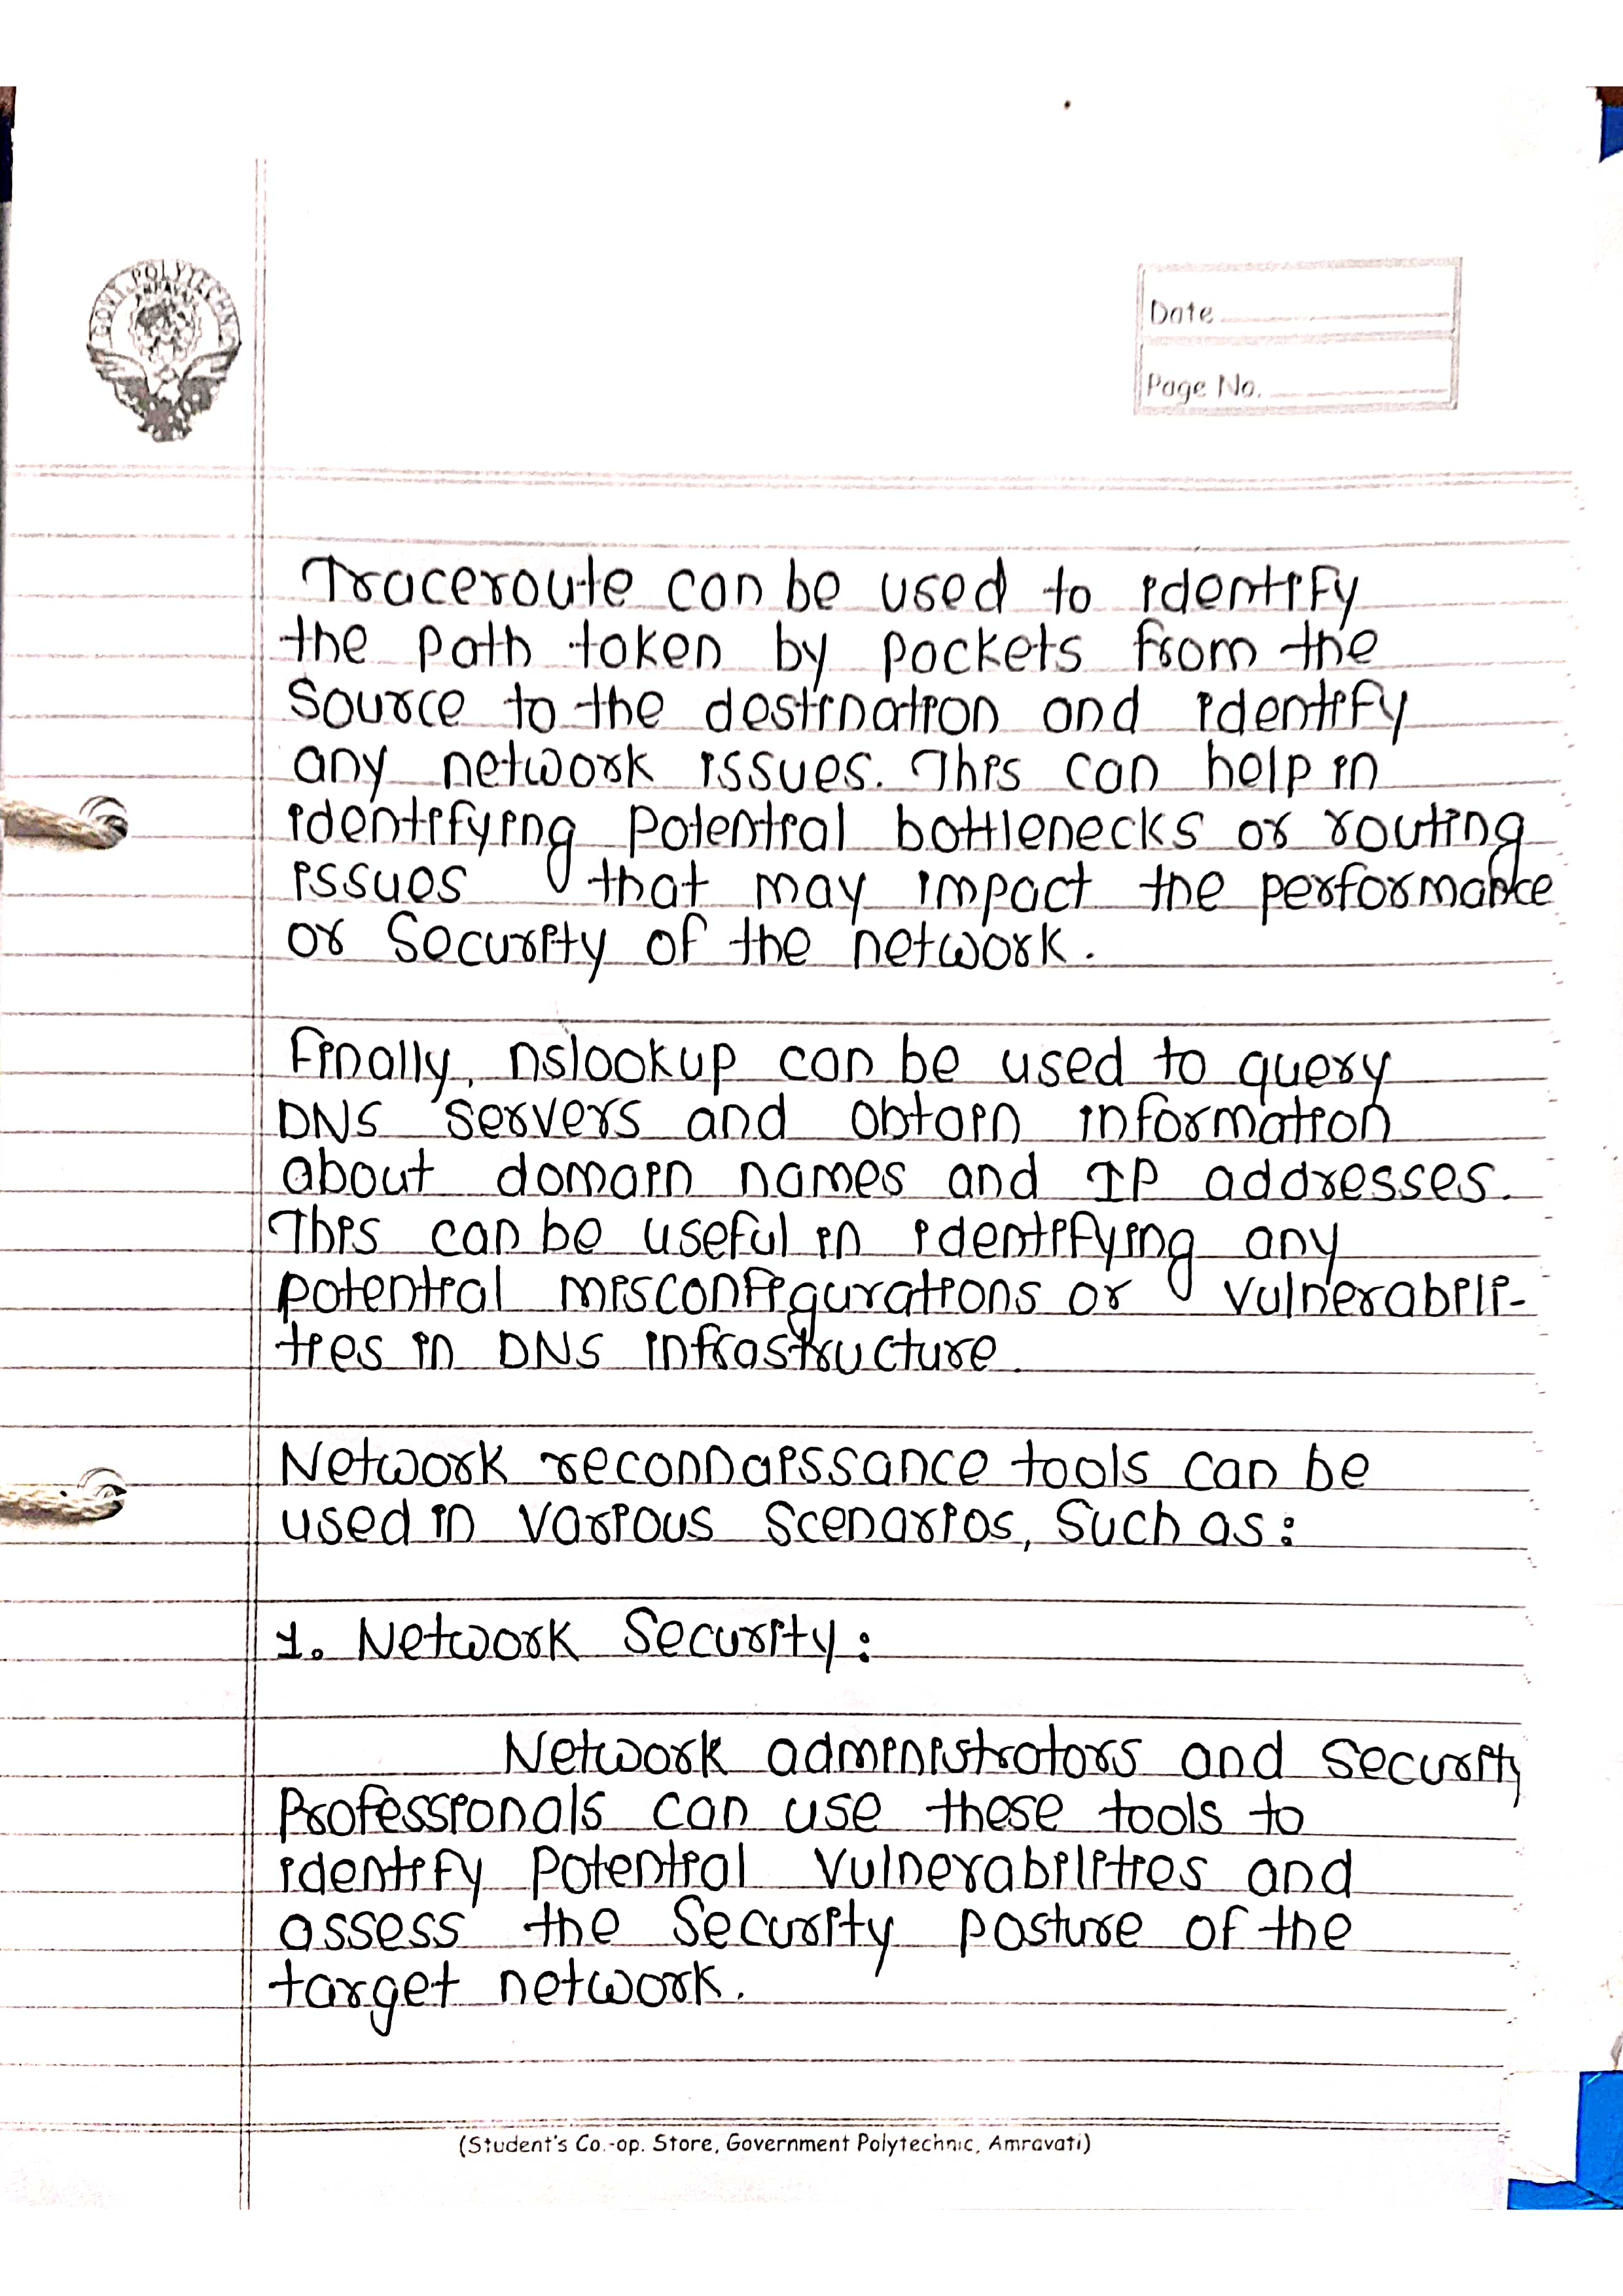 GOVT. POLYTECHNIC
AMRAVATI
Date
Page No.
Traceroute can be used to identify
the path taken by packets from the
Source to the destination and identify
any network issues. This can help in
identifying potential bottlenecks or routing
issues that may impact the performance
or Security of the network.
Finally, nslookup can be used to query
DNS servers and obtain information
about domain names and IP addresses.
This can be useful in identifying any
potential misconfigurations or vulnerabili-
ties in DNS infrastructure.
Network reconnaissance tools can be
used in various scenarios, Such as:
1. Network Security:
Network administrators and security
Professionals can use these tools to
identify potential vulnerabilities and
assess the Security posture of the
target network.
(Student's Co.-op. Store, Government Polytechnic, Amravati)